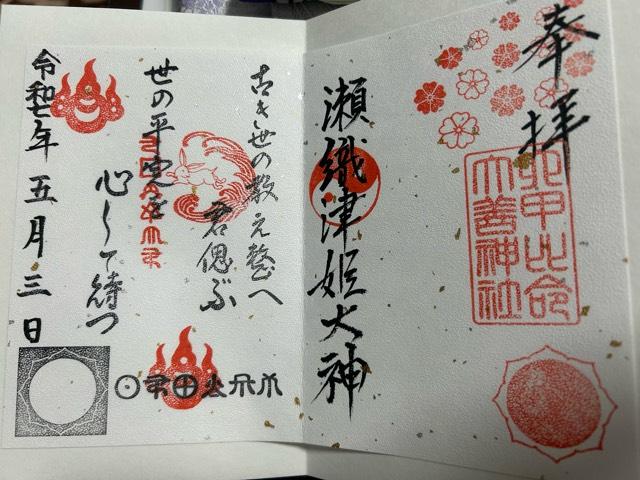 奉拝
六甲比命
大善神社
瀬織津姫大神
古き世の教え整へ
君偲ぶ
世の平安を
心して待つ
令和七年五月三日